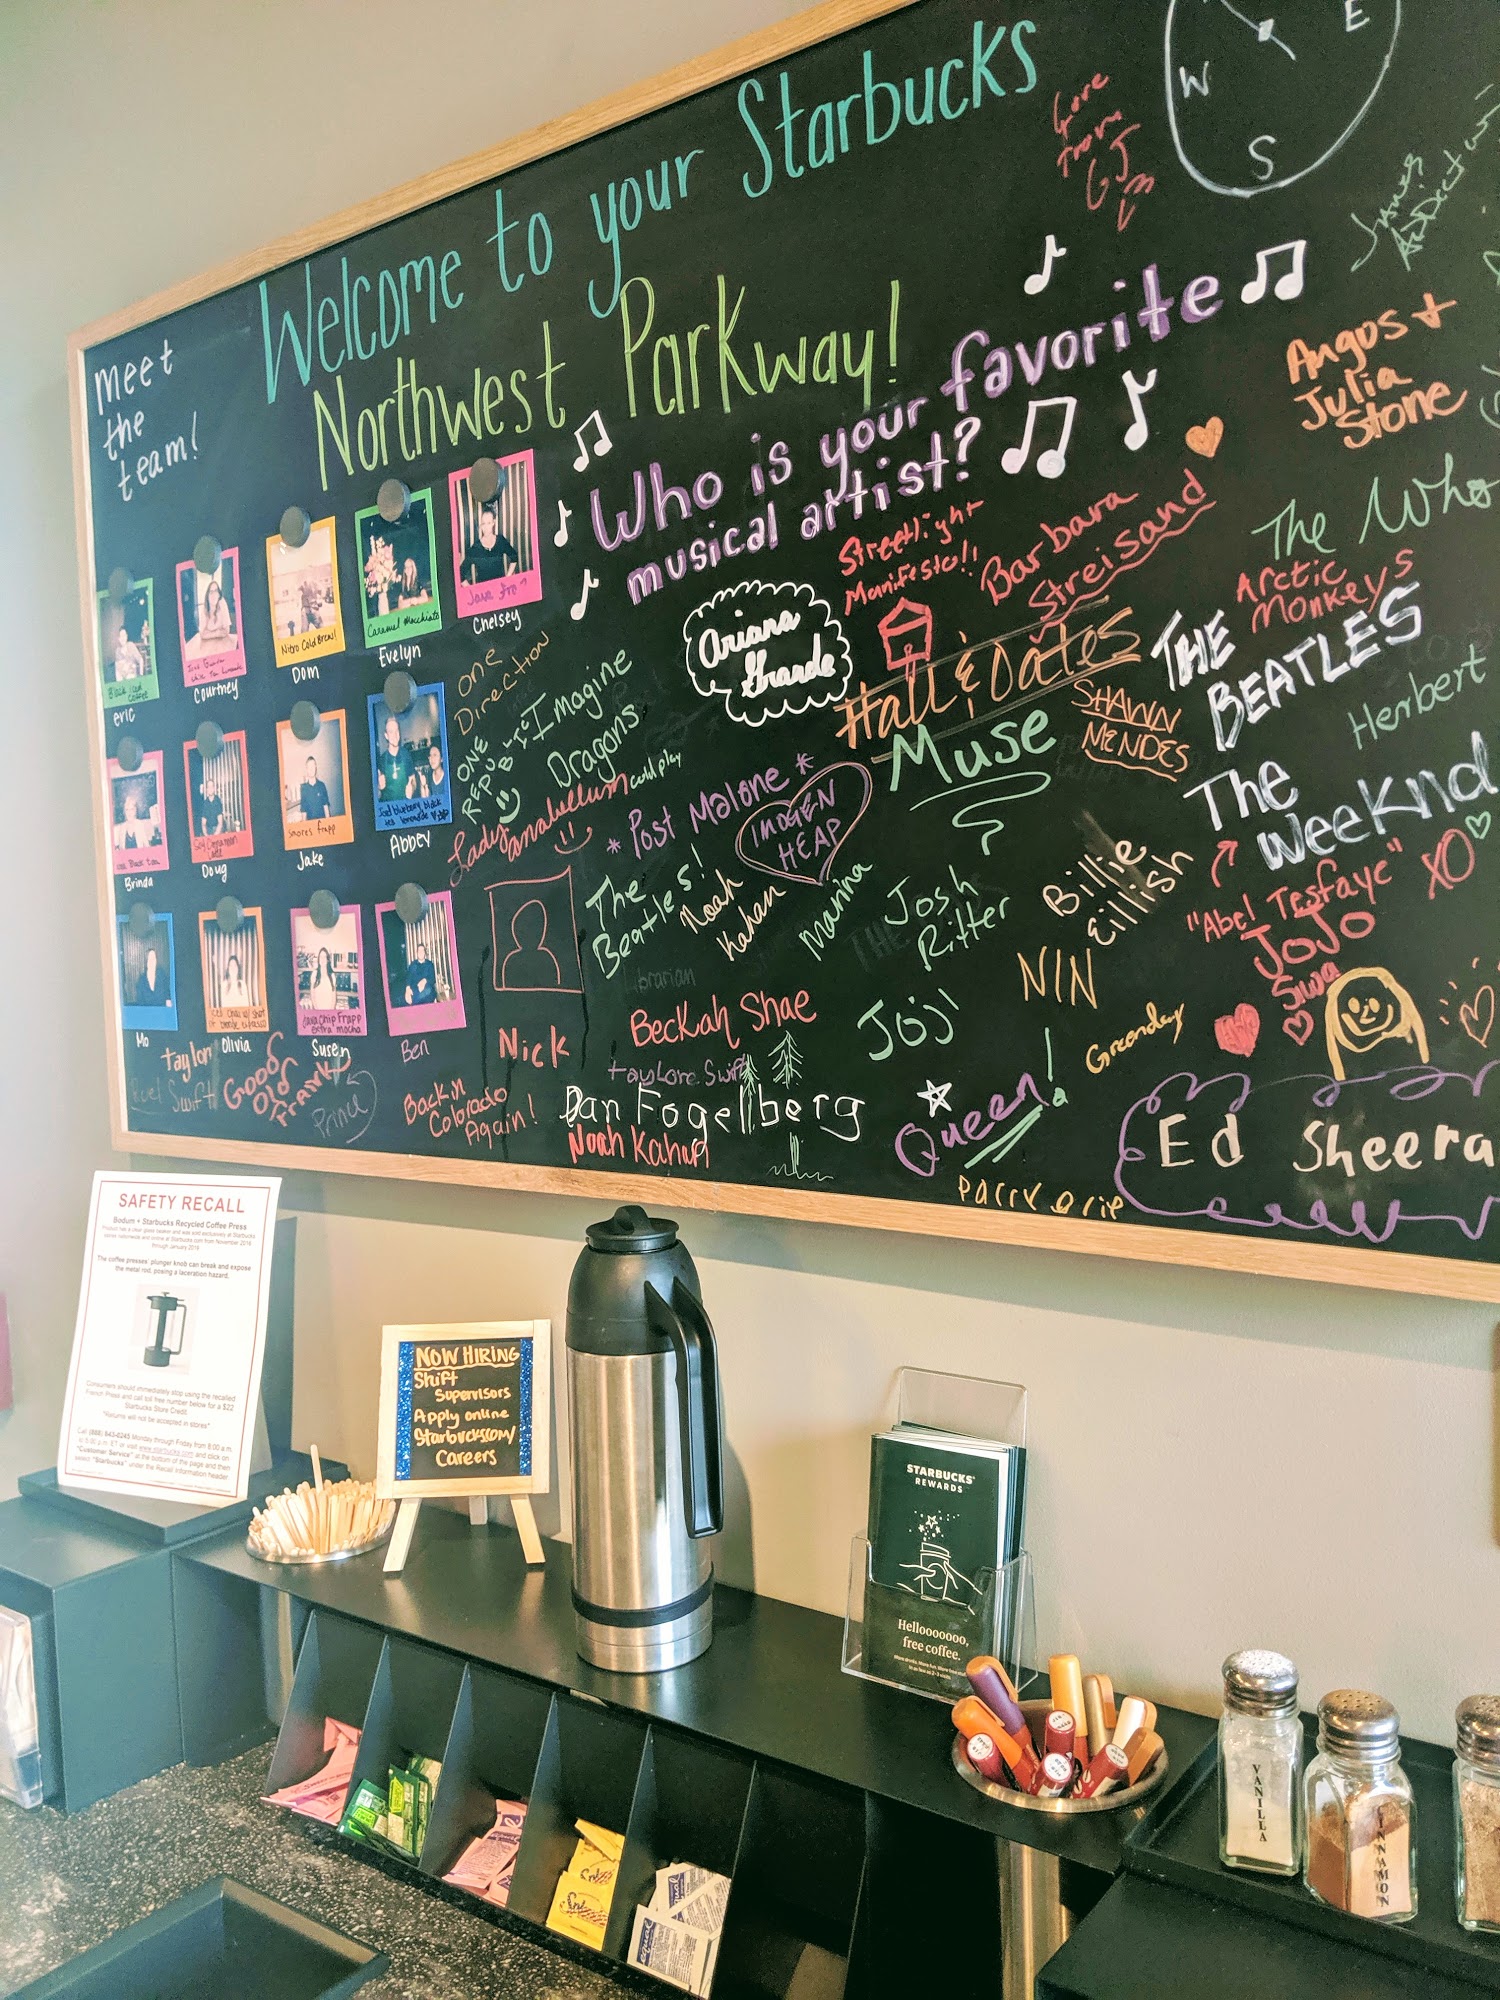 Welcome to your Starbucks
Northwest Parkway!
W
E
S
Love
from
GJ
<3
meet
the
team!
Who is your favorite
musical artist?
Black Iced
Coffee
eric
Courtney
Nitro Cold Brew!
Dom
Caramel Macchiato
Evelyn
Chelsey
Brinda
Doug
Smores frapp
Jake
Iced blueberry black
tea lemonade
Abbey
Mo
Olivia
Java Chip Frapp
extra mocha
Susen
Ben
Nick
one
Direction
ONE
REPUBLIC
Imagine
Dragons
coldplay
Lady
annabellum
Ariana
Grande
Streetlight
Manifesto!!
Barbara
Streisand
Hall & Oates
Muse
Angus +
Julia
Stone
The Who
Arctic
Monkeys
THE
BEATLES
Herbert
SHAWN
MENDES
The
Weeknd
"Abel Tesfaye" XO
* Post Malone *
IMOGEN
HEAP
The
Beatles!
Noah
Kahan
Marina
Josh
Ritter
Billie
Eillish
JoJo
Siwa
NIN
librarian
Beckah Shae
Joji
Greenday
taylor
Swift
Good
Old
Frank
Prince
Back in
Colorado
Again!
taylore Swift
Dan Fogelberg
Noah Kahan
Queen!
Ed Sheera
SAFETY RECALL
Bodum + Starbucks Recycled Coffee Press
Product has a clear glass beaker and was sold exclusively at Starbucks
stores nationwide and online at Starbucks.com from November 2016
through January 2019
The coffee presses' plunger knob can break and expose
the metal rod, posing a laceration hazard.
Consumers should immediately stop using the recalled
French Press and call toll free number below for a $22
Starbucks Store Credit.
*Returns will not be accepted in stores*
Call (888) 843-0245 Monday through Friday from 8:00 a.m.
to 5:00 p.m. ET or visit www.starbucks.com and click on
"Customer Service" at the bottom of the page and then
select "Starbucks" under the Recall Information header
NOW HIRING
Shift
Supervisors
Apply online
Starbucks.com/
Careers
STARBUCKS®
REWARDS
Hellooooooo,
free coffee.
VANILLA
CINNAMON
equal